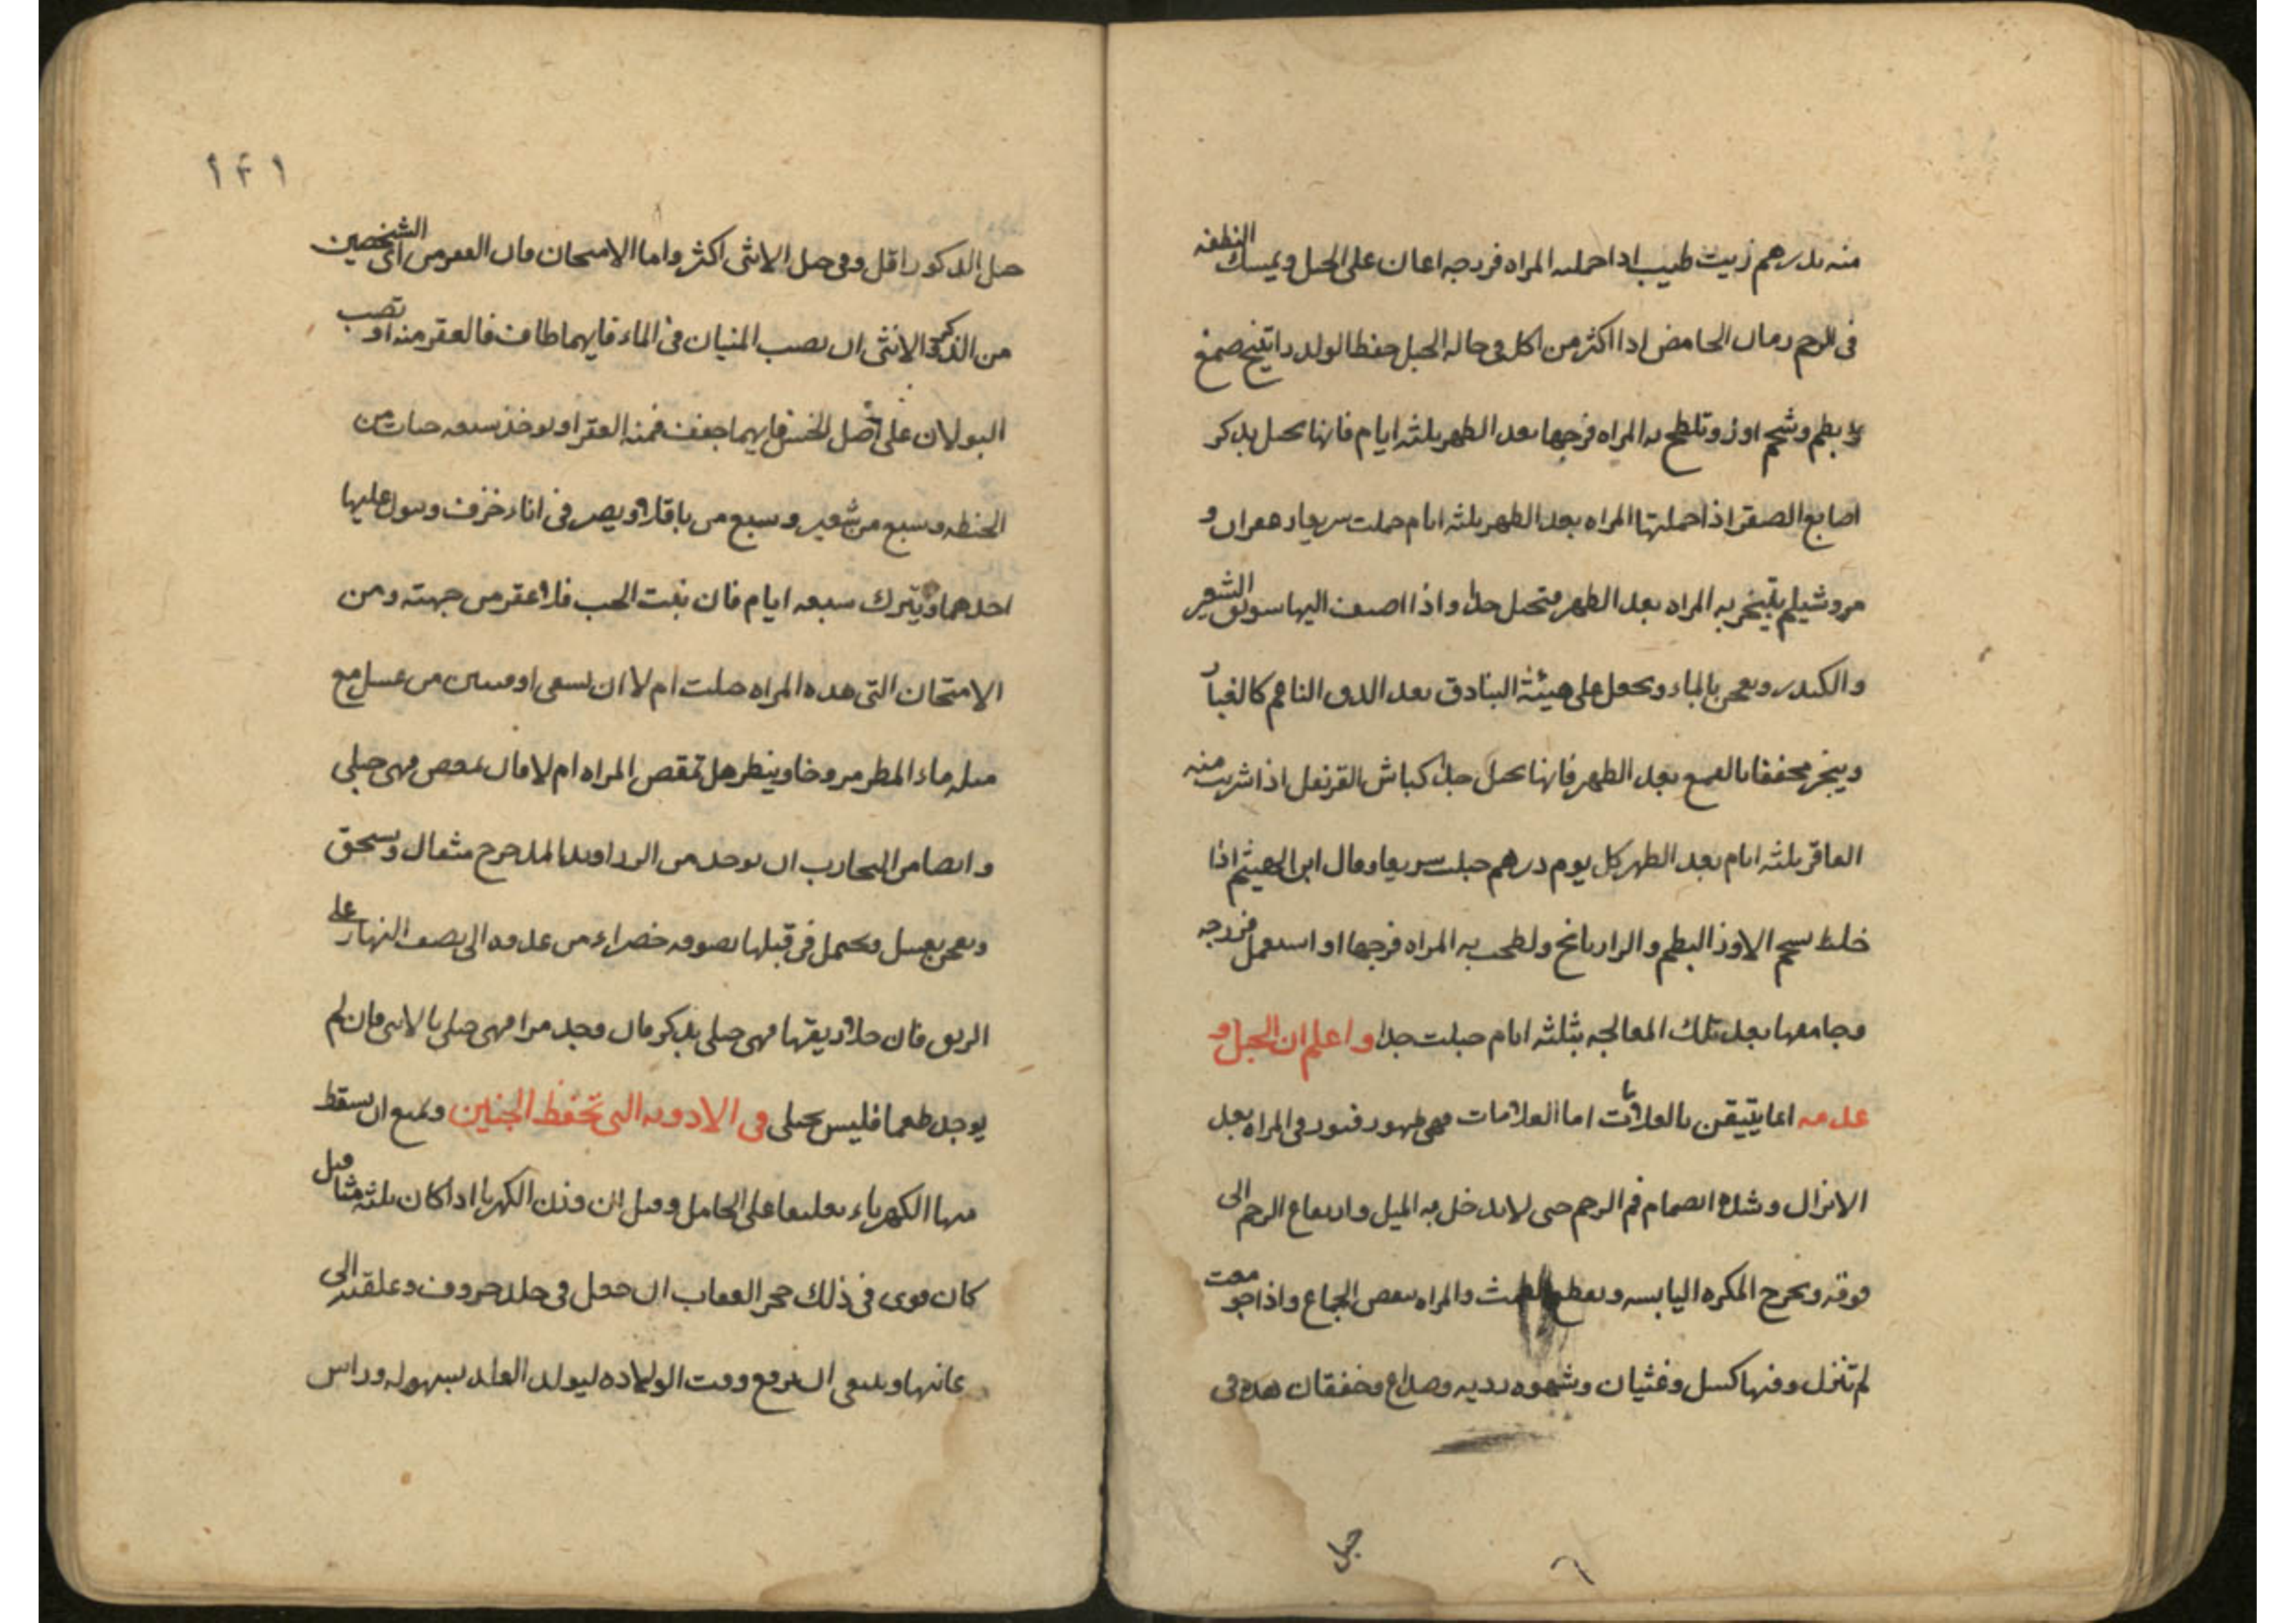 منه بدرهم زيت طيب اذا حملته المراه فرزجه اعان على الحبل ويمسك النطفه
فى الرحم رمان الحامض اذا اكثر من اكله فى حاله الحبل حفظ الولد راتينج صمغ
بطم وشحم اوز وتلطخ به المراه فرجها بعد الطهر بثلثه ايام فانها تحبل بذكر
اصابع الصقر اذا حملتها المراه بعد الطهر بثلثه ايام حملت سريعا زعفران و
مر وشيلم يتبخر به المراه بعد الطهر فتحبل جدا واذا اضيف اليها سويق الشعير
والكندر ويعجن بالماء ويجعل على هيئة البنادق بعد الدق الناعم كالغبار
ويبخر مجففا بالقمع بعد الطهر فانها تحبل جدا كباش القرنفل اذا شربت منه
العاقر بثلثه ايام بعد الطهر كل يوم درهم حبلت سريعا وقال ابن الهيثم اذا
خلط شحم الاوز البطم والراتيانج ولطخت به المراه فرجها او استعمل فرزجه
وجامعها بعد تلك المعالجه بثلثه ايام حبلت جدا واعلم ان الحبل و
عدمه انما يتيقن بالعلامات اما العلامات فهى ظهور فتور فى المراه بعد
الانزال وشدة انضمام فم الرحم حتى لا يدخل به الميل وارتفاع الرحم الى
فوقه ويخرج الكمره اليابسه وينقطع الطمث والمراه تبغض الجماع واذا جومعت
لم تنزل وفيها كسل وغثيان وشهوه رديه وصداع وخفقان هذه فى
حبل
١٤١
حبل الذكور اقل وفى حبل الانثى اكثر واما الامتحان فان العقر من اى الشخصين
من الذكر والانثى ان يصب المنيان فى الماء فايهما طاف فالعقر منه او تصب
البولان على اصل الخس فايهما جفف فمنه العقر او يوخذ سبعه حبات من
الحنطه وسبع من شعير وسبع من باقلا ويصير فى اناء خزف ويبول عليها
احدهما ويترك سبعه ايام فان نبت الحب فلا عقر من جهته ومن
الامتحان التى هذه المراه حبلت ام لا ان تسقى اوقيتين من عسل مع
مثله ماء المطر ممزوجا وينظر هل تمغص المراه ام لا فان تمغص فهى حبلى
وايضا من التجارب ان يوخذ من الزراوند المدحرج مثقال ويسحق
ويعجن بعسل ويحتمل فى قبلها بصوفه خضراء من غدوه الى نصف النهار على
الريق فان حلا ريقها فهى حبلى بذكر فان وجد مرا فهى حبلى بالانثى فان لم
يوجد طعما فليس بحبلى فى الادويه التى تحفظ الجنين وتمنع ان يسقط
منها الكهرباء تعليقا على الحامل وقيل ان وزن الكهربا اذا كان ثلثه مثاقيل
كان قوى فى ذلك حجر العقاب ان جعل فى جلد خروف وعلقته الى
عانتها وينبغى ان يرفع وقت الولاده ليولد الولد بسهوله وراس